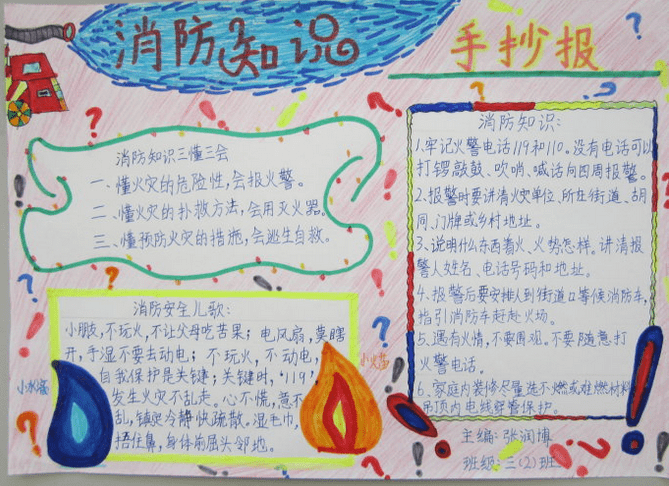 消防知识
手抄报
消防知识三懂三会
一、懂火灾的危险性,会报火警。
二、懂火灾的扑救方法,会用灭火器。
三、懂预防火灾的措施,会逃生自救。
消防安全儿歌:
小朋友,不玩火,不让父母吃苦果;电风扇,莫瞎
开,手湿不要去动电;不玩火,不动电,
自我保护是关键;关键时,'119',
发生火灾不乱走。心不慌,意不
乱,镇定冷静快疏散。湿毛巾,
捂住鼻,身体前屈头邻地。
小水滴
小火苗
消防知识:
1.牢记火警电话119和110。没有电话可以
打锣敲鼓、吹哨、喊话向四周报警。
2.报警时要讲清火灾单位、所在街道、胡
同、门牌或乡村地址。
3、说明什么东西着火、火势怎样。讲清报
警人姓名、电话号码和地址。
4、报警后要安排人到街道口等候消防车,
指引消防车赶赴火场。
5、遇有火情,不要围观。不要随意打
火警电话。
6、家庭内装修尽量选不燃或难燃材料
吊顶内电线穿管保护。
主编:张润博
班级:三(2)班